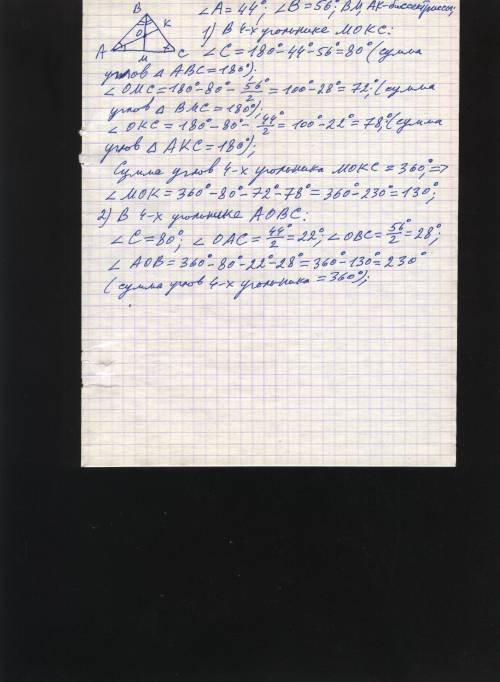 ∠A = 44°, ∠B = 56°; BM, AK - биссектрисы;
B
K
O
A
C
M
1) В 4-х угольнике МОКС:
∠C = 180° - 44° - 56° = 80° (сумма
углов Δ ABC = 180°);
∠OMC = 180° - 80° - 56°/2 = 100° - 28° = 72°; (сумма
углов Δ BMC = 180°);
∠OKC = 180° - 80° - 44°/2 = 100° - 22° = 78°, (сумма
углов Δ AKC = 180°);
Сумма углов 4-х угольника МОКС = 360° =>
∠MOK = 360° - 80° - 72° - 78° = 360° - 230° = 130°;
2) В 4-х угольнике AOBC:
∠C = 80°; ∠OAC = 44°/2 = 22°; ∠OBC = 56°/2 = 28°;
∠AOB = 360° - 80° - 22° - 28° = 360° - 130° = 230°
(сумма углов 4-х угольника = 360°);